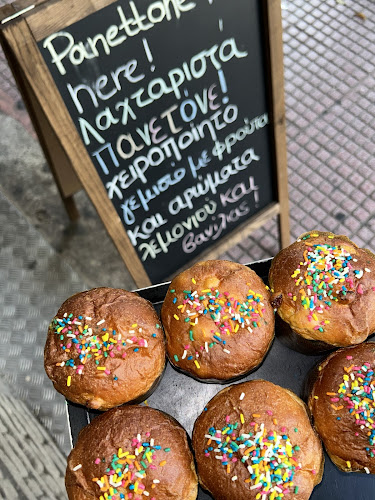 Panettone
here!
Λαχταριστά
Πανετόνε!
χειροποίητο
γεμιστό με φρούτα
και αρώματα
λεμονιού και
βανίλιας!